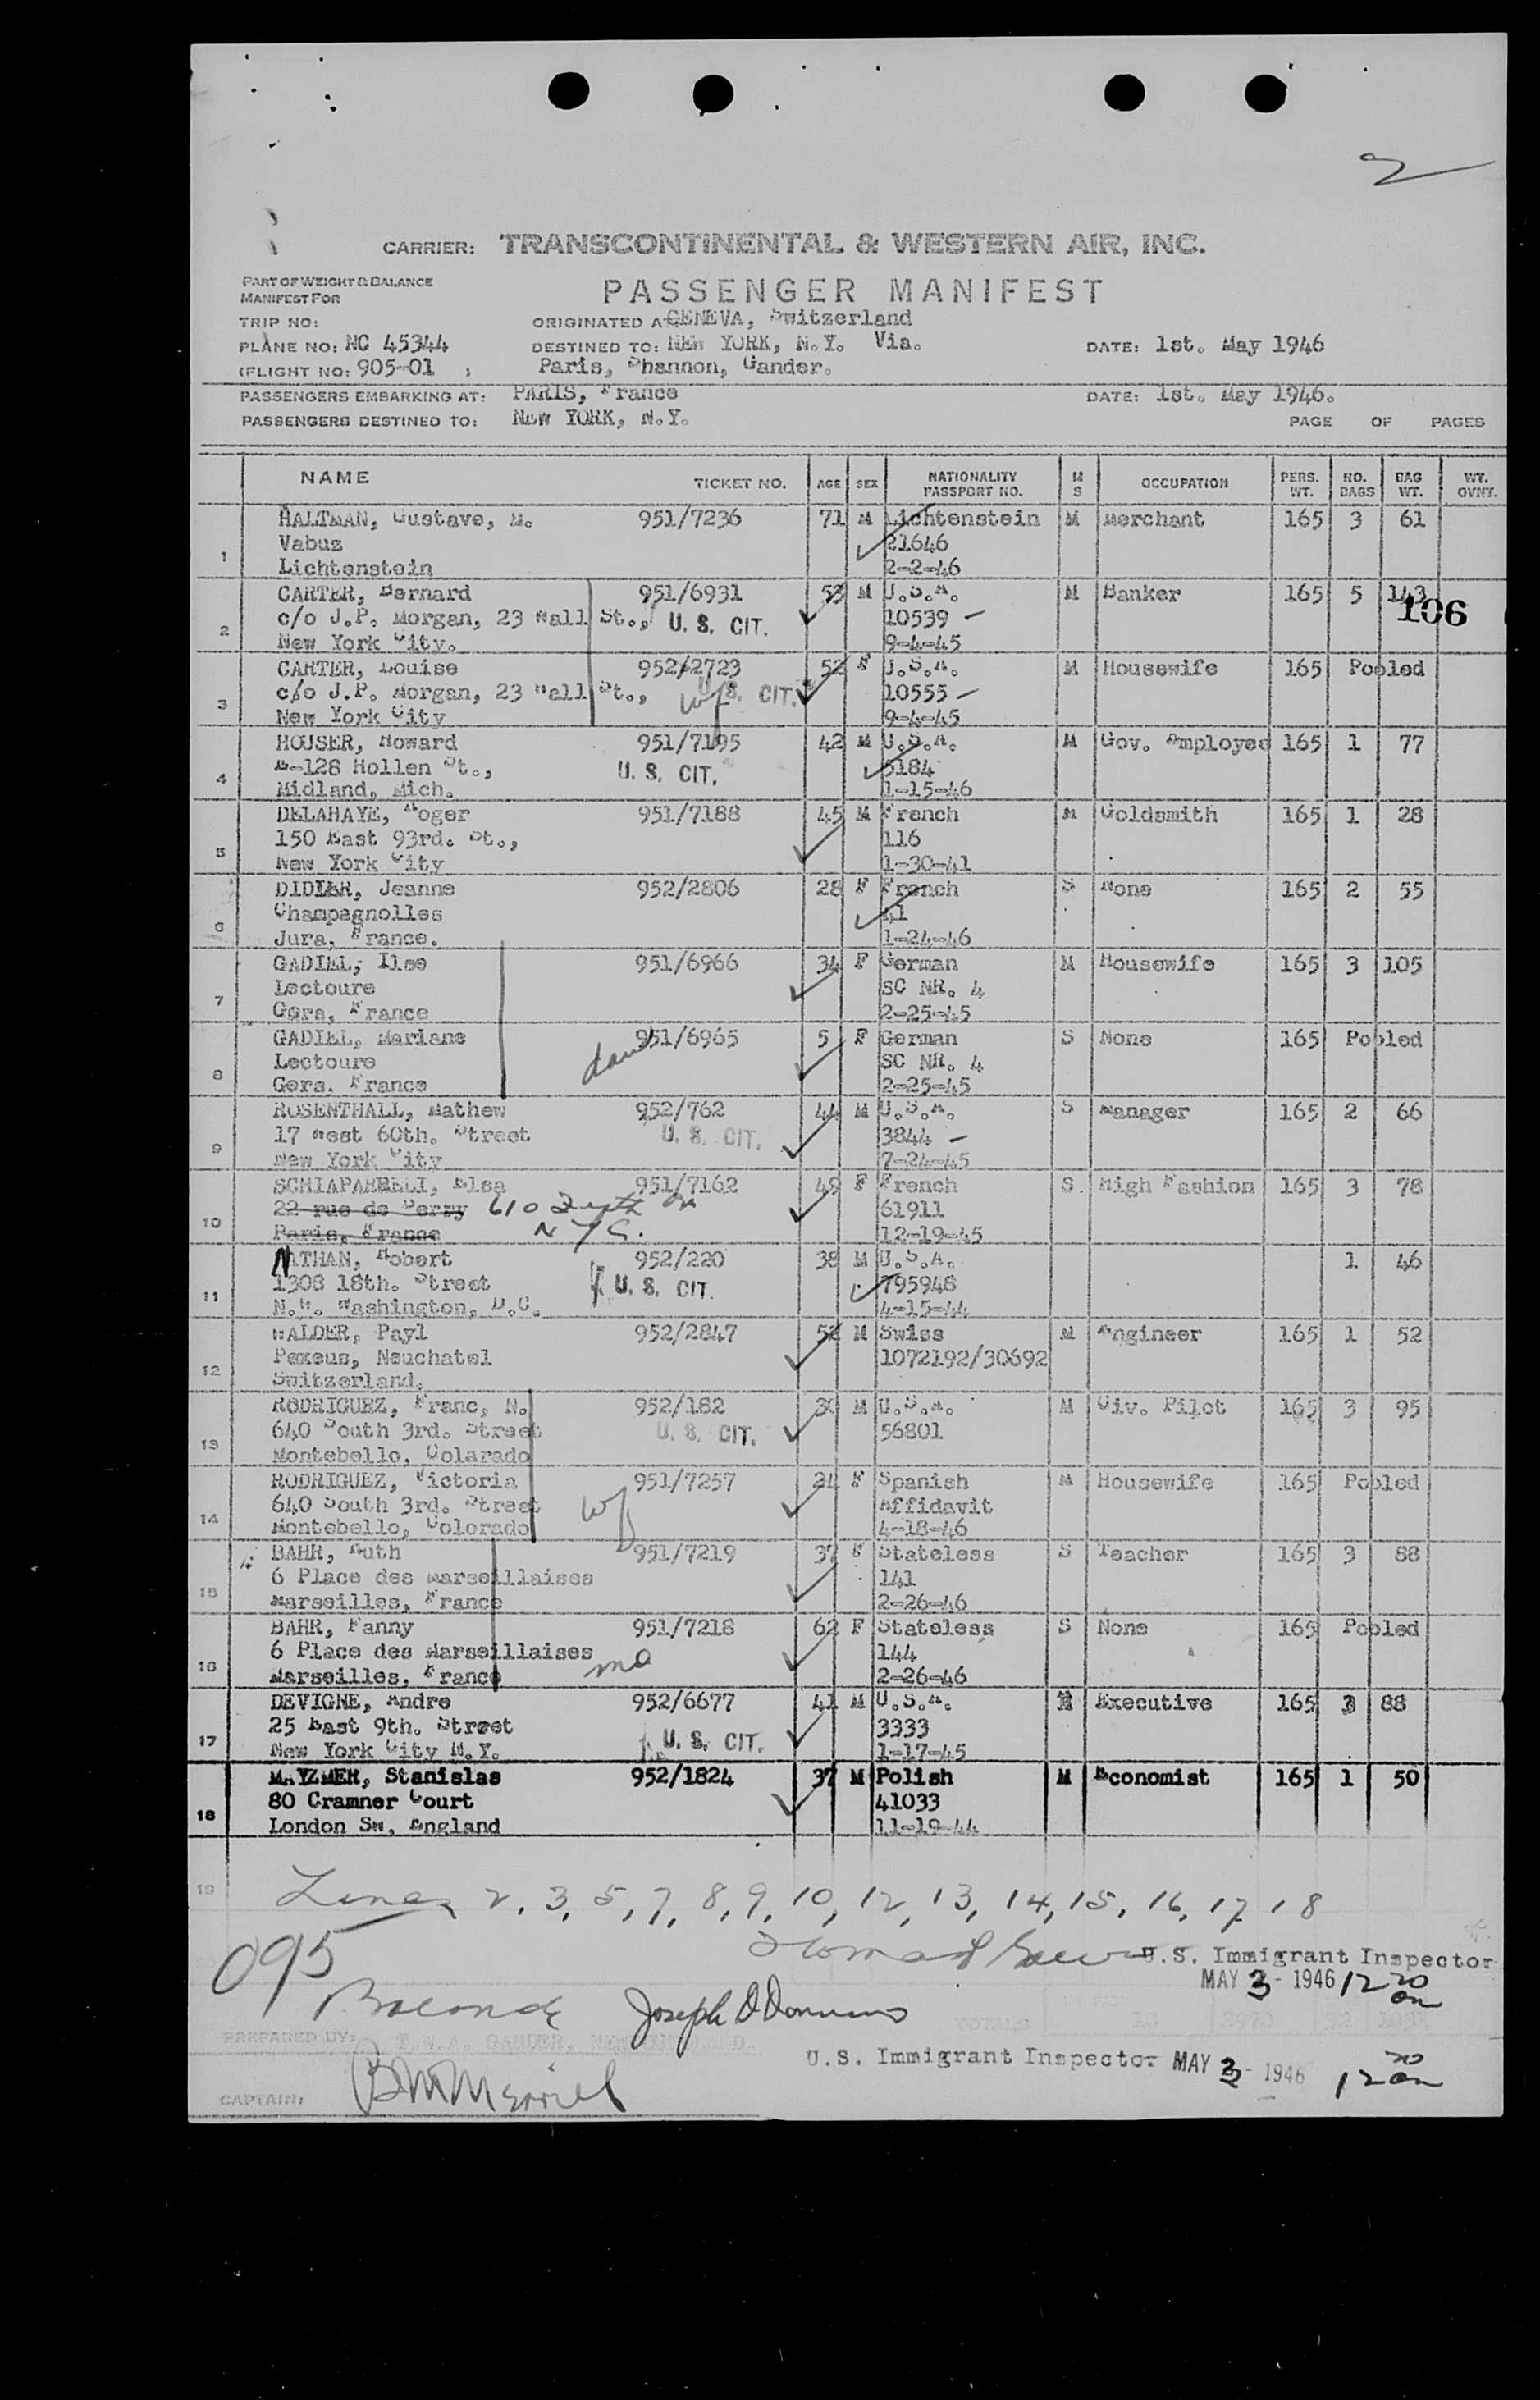 2
CARRIER: TRANSCONTINENTAL & WESTERN AIR, INC.
PART OF WEIGHT & BALANCE
MANIFEST FOR
PASSENGER MANIFEST
TRIP NO: ORIGINATED AT GENEVA, Switzerland
PLANE NO: NC 45344 DESTINED TO: NEW YORK, N.Y. Via. DATE: 1st. May 1946
(FLIGHT NO: 905-01 ) Paris, Shannon, Gander.
PASSENGERS EMBARKING AT: PARIS, France DATE: 1st. May 1946.
PASSENGERS DESTINED TO: NEW YORK, N.Y. PAGE OF PAGES
NAME TICKET NO. AGE SEX NATIONALITY PASSPORT NO. M S OCCUPATION PERS. WT. NO. BAGS BAG WT. WT. OVNT.
HALTMAN, Gustave, M. 951/7236 71 M Lichtenstein M Merchant 165 3 61
Vabuz 21646
1 Lichtenstein 2-2-46
CARTER, Bernard 951/6931 53 M U.S.A. M Banker 165 5 143
c/o J.P. Morgan, 23 Wall St., U. S. CIT. 10539 106
2 New York City. 9-4-45
CARTER, Louise 952/2723 52 F U.S.A. M Housewife 165 Pooled
c/o J.P. Morgan, 23 Wall St., wf U. S. CIT. 10555
3 New York City 9-4-45
HOUSER, Howard 951/7195 42 M U.S.A. M Gov. Employee 165 1 77
B-128 Hollen St., U. S. CIT. 5184
4 Midland, Mich. 1-15-46
DELAHAYE, Roger 951/7188 45 M French M Goldsmith 165 1 28
150 East 93rd. St., 116
5 New York City 1-30-41
DIDIER, Jeanne 952/2806 28 F French S None 165 2 55
Champagnolles 41
6 Jura, France. 1-24-46
GADIEL, Ilse 951/6966 34 F German M Housewife 165 3 105
Lectoure SC NR. 4
7 Gers, France 2-25-45
GADIEL, Mariane 951/6965 5 F German S None 165 Pooled
Lectoure dau SC NR. 4
8 Gers. France 2-25-45
ROSENTHALL, Mathew 952/762 44 M U.S.A. S Manager 165 2 66
17 West 60th. Street U. S. CIT. 3844
9 New York City 7-24-45
SCHIAPARRELI, Elsa 951/7162 49 F French S. High Fashion 165 3 78
22 rue de Berry 610 61911
10 Paris, France NYC. 12-19-45
NATHAN, Robert 952/220 38 M U.S.A. 1 46
1308 18th. Street U. S. CIT. 795948
11 N.W. Washington, D.C. 4-15-44
WALDER, Payl 952/2847 52 M Swiss M Engineer 165 1 52
Pexeus, Neuchatel 1072192/30692
12 Switzerland.
RODRIGUEZ, Franc, N. 952/182 30 M U.S.A. M Civ. Pilot 165 3 95
640 South 3rd. Street U. S. CIT. 56801
13 Montebello, Colarado
RODRIGUEZ, Victoria 951/7257 24 F Spanish M Housewife 165 Pooled
640 South 3rd. Street wf Affidavit
14 Montebello, Colorado 4-18-46
BAHR, Ruth 951/7219 37 F Stateless S Teacher 165 3 88
6 Place des Marseillaises 141
15 Marseilles, France 2-26-46
BAHR, Fanny 951/7218 62 F Stateless S None 165 Pooled
6 Place des Marseillaises mo 144
16 Marseilles, France 2-26-46
DEVIGNE, Andre 952/6677 41 M U.S.A. M Executive 165 3 88
25 East 9th. Street U. S. CIT. 3333
17 New York City N.Y. 1-17-45
MAYZMER, Stanislas 952/1824 37 M Polish M Economist 165 1 50
80 Cramner Court 41033
18 London SW, England 11-19-44
19 Lines 2, 3, 5, 7, 8, 9, 10, 12, 13, 14, 15, 16, 17 18
095
U.S. Immigrant Inspector
MAY 3 - 1946 12 20 am
Joseph D
PREPARED BY: T.W.A. GANDER, NEWFOUNDLAND. TOTALS
U.S. Immigrant Inspector MAY 3 - 1946 12 20 am
CAPTAIN: Merrill